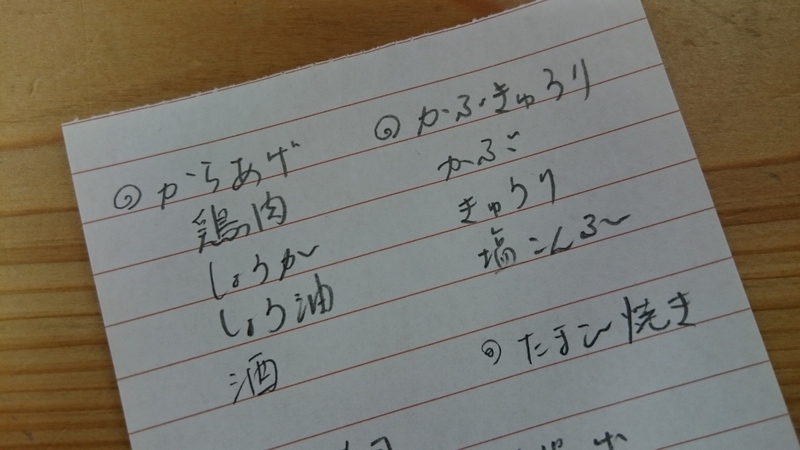 ◎ からあげ
鶏肉
しょうが
しょう油
酒
◎ かぶきゅうり
かぶ
きゅうり
塩こんぶ
◎ たまご焼き